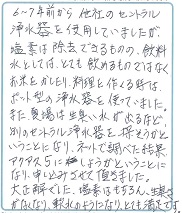 6～7年前から他社のセントラル
浄水器を使用していましたが、
塩素は除去できるものの、飲料
水としては、とても飲めるものではなく
お米をかしたり、料理を作る時は、
ポット型の浄水器を使っていました。
また、最後は出ない水が出るなど、
別のセントラル浄水器を探そうかと
いうことになり、ネットで調べた結果
アクアス5にしようかということに
なり、申し込みさせて頂きました。
大正解でした、塩素はもちろん、
がなくなり、軟水のようになり、とても満足です